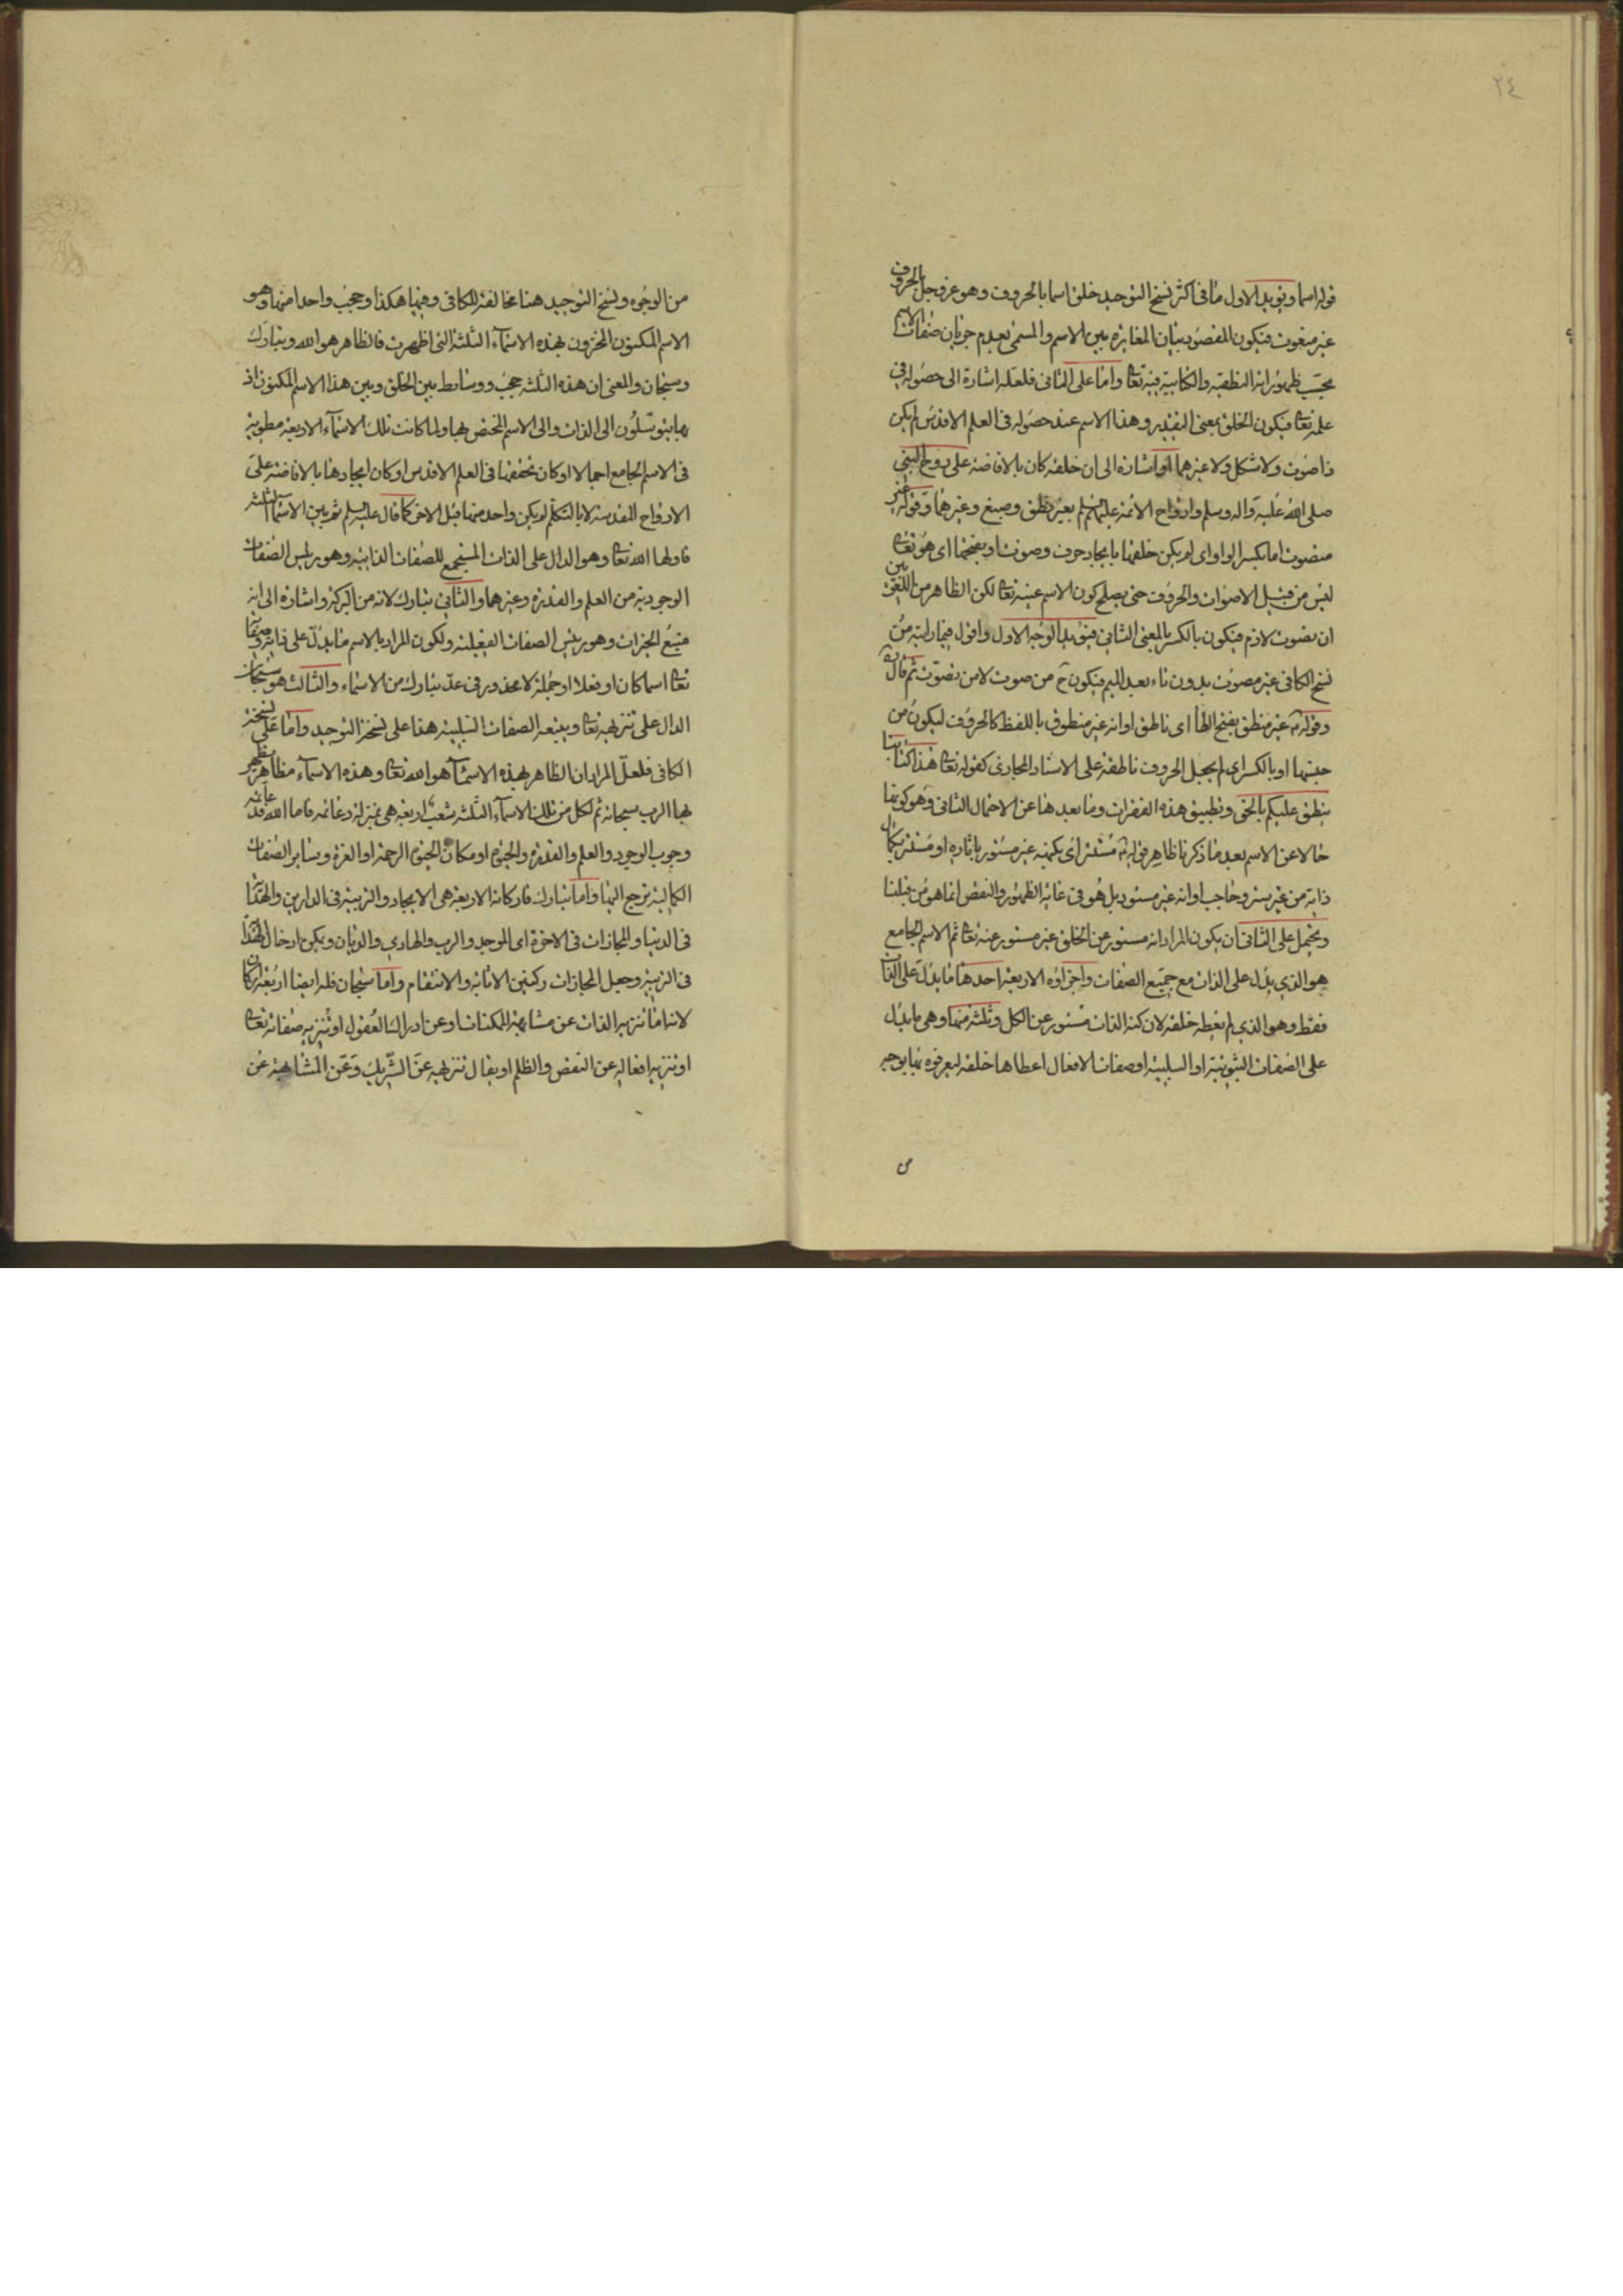 ٢٤
قوله اسما ويؤيد الاول ما في اكثر نسخ التوحيد خلق اسما بالحروف وهو عز وجل بالحروف
غير منعوت فيكون المقصود بيان المغايرة بين الاسم والمسمى بعدم جريان صفات الاسم
بحسب ظهوراته النطقية والكتابية فيه تعالى واما على الثاني فلعله اشارة الى حصوله في
علمه تعالى فيكون الخلق بمعنى التقدير وهذا الاسم عند حصوله في العلم الاقدس لم يكن
ذا صوت ولا شكل ولا غيرهما او اشارة الى ان خلقه كان بالافاضة على روح النبي
صلى الله عليه واله وسلم وارواح الائمة عليهم السلم بغير نطق وصبغ وغيرهما وقوله غير
مصوت اما بكسر الواو اى لم يكن خلقها بايجاد حرف وصوت او بفتحها اى هو تعالى
ليس من قبيل الاصوات والحروف حتى يصلح كون الاسم عينه تعالى لكن الظاهر من اللغويين
ان تصوت لازم فيكون بالكسر بالمعنى الثاني فيؤيد الوجه الاول واقول فيما رايته من
نسخ الكافي غير مصوت بدون تاء بعد الميم فيكون ح من صوت لا من تصوت ثم قال ره
وقوله ع غير منطق بفتح الطاء اى ناطق او انه غير منطوق باللفظ كالحروف ليكون من
جنسها او بالكسر اى لم يجعل الحروف ناطقة على الاسناد المجازي كقوله تعالى هذا كتابنا
ينطق عليكم بالحق وتطبيق هذه الفقرات وما بعد هنا عن الاحتمال الثاني وهو كونها
حالا عن الاسم بعد ما ذكرنا ظاهر قوله ع مستتر اى بكنهه غير مستور باثاره او مستتر بكمال
ذاته من غير ستر وحاجب او انه غير مستور بل هو في غاية الظهور والنقص انما هو من قبلنا
ويحتمل على الثاني ان يكون المراد انه مستور عن الخلق غير مستور عنه تعالى ثم الاسم الجامع
هو الذي يدل على الذات مع جميع الصفات واجزاؤه الاربعة احدها ما يدل على الذات
فقط وهو الذي لم يعطه خلقه لان كنه الذات مستور عن الكل وثلثة منها وهى ما يدل
على الصفات الثبوتية او السلبية او صفات الافعال اعطاها خلقه ليعرفوه بها بوجه
من
من الوجوه ونسخ التوحيد هنا مخالفة للكافي وفيها هكذا وحجب واحدا منها وهو
الاسم المكنون المخزون بهذه الاسماء الثلثة التي اظهرت فالظاهر هو الله وتبارك
وسبحان والمعنى ان هذه الثلثة حجب ووسايط بين الخلق وبين هذا الاسم المكنون اذ
بها يتوسلون الى الذات والى الاسم المختص بها ولما كانت تلك الاسماء الاربعة مطوية
في الاسم الجامع اجمالا او كان تحققها في العلم الاقدس او كان ايجادها بالافاضة على
الارواح المقدسة لا بالتكلم لم يكن واحد منها قبل الاخر كما قال عليه السلم ثم بين الاسماء الثلثة
فاولها الله تعالى وهو الدال على الذات المستجمع للصفات الذاتية وهو رئيس الصفات
الوجودية من العلم والقدرة وغيرهما والثاني تبارك لانه من البركة واشارة الى انه
منبع الخيرات وهو رئيس الصفات الفعلية ولكون المراد بالاسم ما يدل على ذاته وصفاته
تعالى اسما كان او فعلا او جملة لا محذور في عد تبارك من الاسماء والثالث هو سبحان
الدال على تنزيهه تعالى ويتبعه الصفات السلبية هذا على نسخة التوحيد واما على نسخة
الكافي فلعل المراد ان الظاهر بهذه الاسماء هو الله تعالى وهذه الاسماء مظاهر يظهر
بها الرب سبحانه ثم لكل من تلك الاسماء الثلثة شعب اربعة هي بمنزلة دعائمه فاما الله فدعائمه
وجوب الوجود والعلم والقدرة والحيوة او مكان الحيوة الرحمة او العزة وساير الصفات
الكمالية ترجع اليها واما تبارك فاركانه الاربعة هى الايجاد والتربية في الدارين والهداية
في الدنيا والمجازات في الاخرة اى الموجد والرب والهادي والديان ويمكن ادخال الهداية
في التربية وجعل المجازات ركنين الاثابة والانتقام واما سبحان فله ايضا اربعة اركان
لانه اما تنزيه الذات عن مشابهة الممكنات او عن ادراك العقول او تنزيه صفاته تعالى
او تنزيه افعاله عن النقص والظلم او يقال تنزيهه عن الشريك وعن المشابهة عن